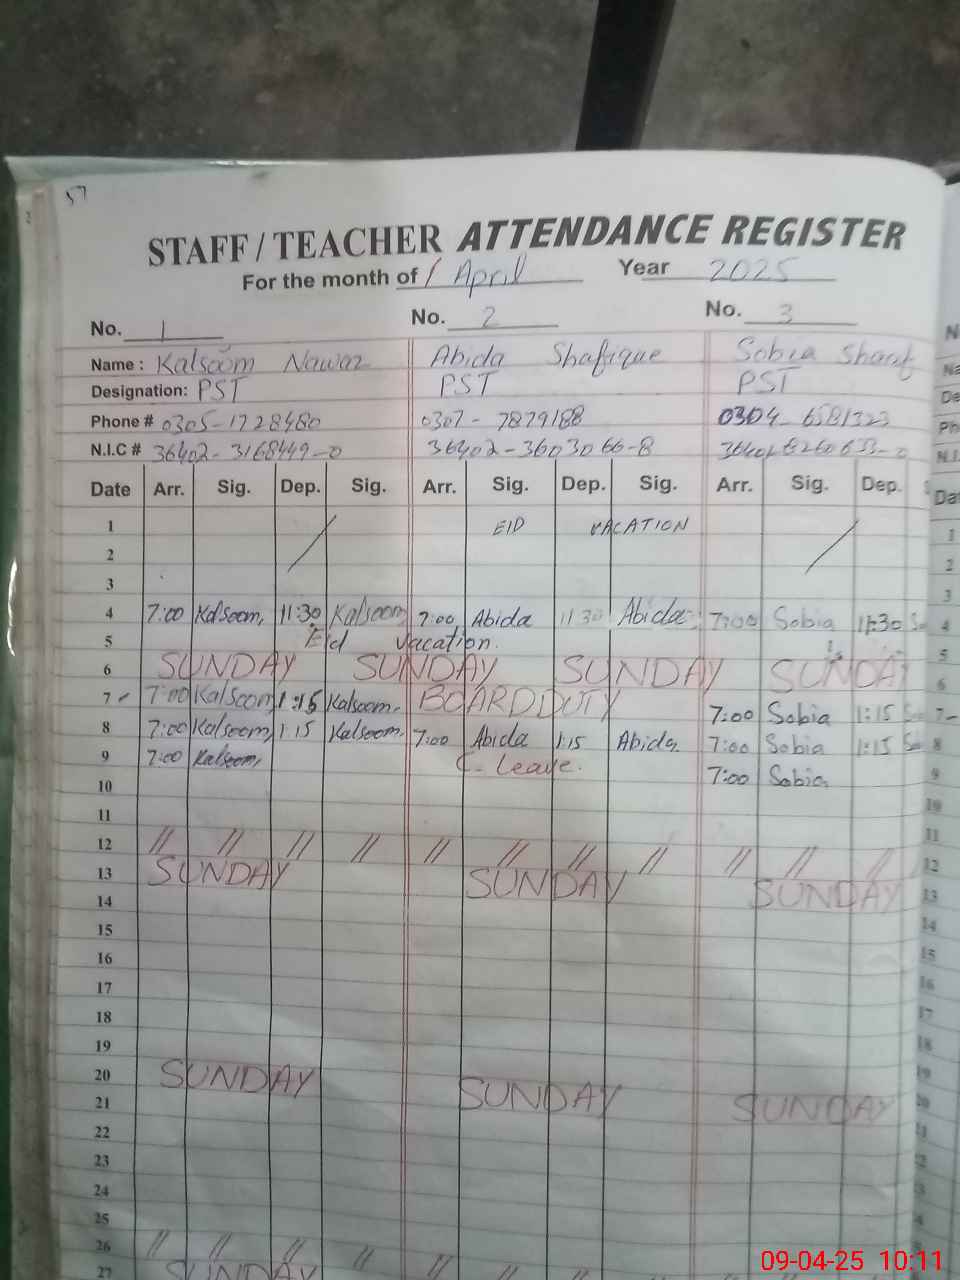 57
STAFF / TEACHER ATTENDANCE REGISTER
For the month of April Year 2025
No. 1 No. 2 No. 3
Name : Kalsoom Nawaz Abida Shafique Sobia Sharif
Designation: PST PST PST
Phone # 0305-1728480 0307-7879188 0304-6581323
N.I.C # 36402-3168449-0 36402-3603066-8
Date Arr. Sig. Dep. Sig. Arr. Sig. Dep. Sig. Arr. Sig. Dep.
1 EID VACATION
2
3
4 7:00 Kalsoom 11:30 Kalsoom 7:00 Abida 11:30 Abida 7:00 Sobia 11:30
5 Eid vacation.
6 SUNDAY SUNDAY SUNDAY SUNDAY
7 7:00 Kalsoom 1:15 Kalsoom BOARD DUTY 7:00 Sobia 1:15
8 7:00 Kalsoom 1:15 Kalsoom 7:00 Abida 1:15 Abida 7:00 Sobia 1:15
9 7:00 Kalsoom C-Leave. 7:00 Sobia
10
11
12 // // // // // // // // // // //
13 SUNDAY SUNDAY SUNDAY
14
15
16
17
18
19
20 SUNDAY SUNDAY SUNDAY
21
22
23
24
25
26 // // // // //
27 SUNDAY
09-04-25 10:11